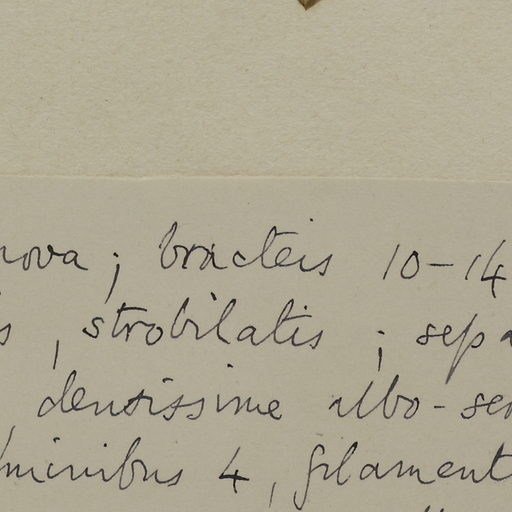 nova ; bracteis 10-14
s , strobilatis ; sepa
, densissime albo-ser
minibus 4, filament